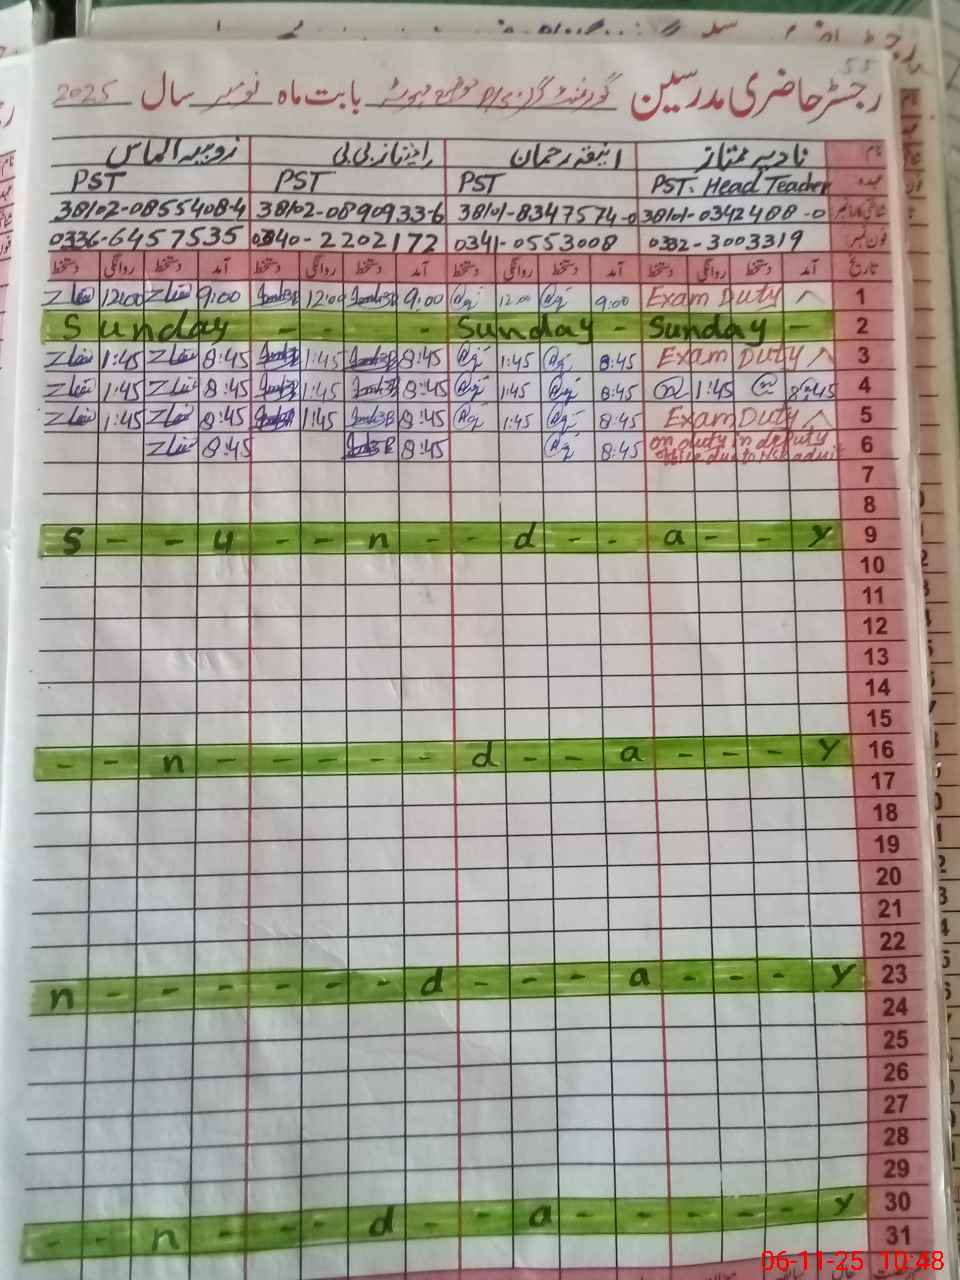 رجسٹر حاضری مدرسین گورنمنٹ گرلز بابت ماہ نومبر سال 2025
55
نام نادیہ ممتاز انیقہ رحمان بی بی زوبیہ الماس
عہدہ PST. Head Teacher PST PST PST
38101-0342488-0 38101-8347574-0 38102-0890933-6 38102-0855408-4
فون نمبر 0332-3003319 0341-0553008 0340-2202172 0336-6457535
تاریخ آمد دستخط روانگی دستخط آمد دستخط روانگی دستخط آمد دستخط روانگی دستخط آمد دستخط روانگی دستخط
1 Exam Duty 9:00 12:00 9:00 12:00 9:00 12:00
2 Sunday - - - - Sunday - Sunday -
3 Exam Duty 8:45 1:45 8:45 1:45 8:45 1:45
4 8:45 1:45 8:45 1:45 8:45 1:45 8:45 1:45
5 Exam Duty 8:45 1:45 8:45 1:45 8:45 1:45
6 on duty in deputy office due to 8:45 8:45 8:45
7
8
9 S - - u - - n - - d - - a - - y
10
11
12
13
14
15
16 - - n - - - - - d - - a - - - y
17
18
19
20
21
22
23 n - - - - - - d - - - a - - - y
24
25
26
27
28
29
30 - - n - - - d - - a - - - - - y
31
06-11-25 10:48